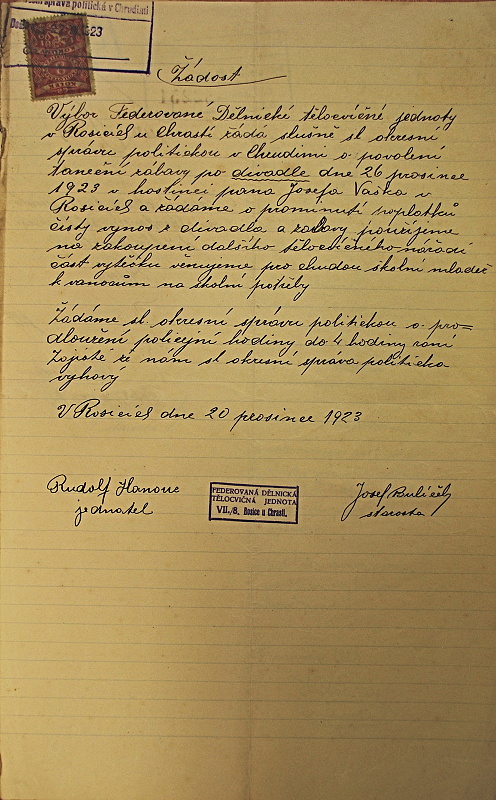 správa politická v Chrudimi
1923
Žádost
Výbor Federované Dělnické tělocvičné jednoty
v Rosicích u Chrasti žádá slušně sl okresní
správu politickou v Chrudimi o povolení
taneční zábavy po divadle dne 26 prosince
1923 v hostinci pana Josefa Vaška v
Rosicích a žádáme o prominutí poplatků
čistý výnos z divadla a zábavy použijeme
na zakoupení dalšího tělocvičného nářadí
část výtěžku věnujeme pro chudou školní mládež
k vanocům na školní potřeby
Žádáme sl. okresní správu politickou o pro=
dloužení policejní hodiny do 4 hodiny ranní
Zajisté že nám sl okresní správa politická
vyhový
V Rosicích dne 20 prosince 1923
Rudolf Hanouc
jednatel
FEDEROVANÁ DĚLNICKÁ
TĚLOCVIČNÁ JEDNOTA
VII./8. Rosice u Chrasti.
Josef
starosta